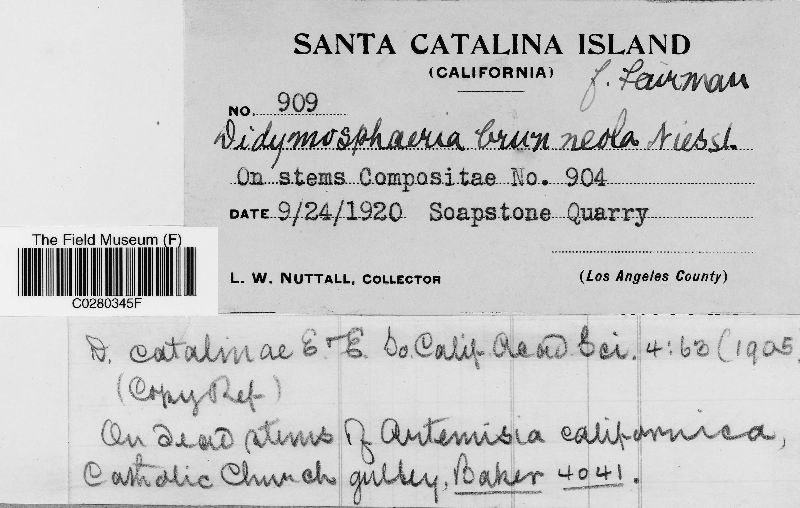 SANTA CATALINA ISLAND
(CALIFORNIA)
f. Fairman
NO. 909
Didymosphaeria brunneola Niessl.
On stems Compositae No. 904
DATE 9/24/1920 Soapstone Quarry
L. W. NUTTALL, COLLECTOR
(Los Angeles County)
The Field Museum (F)
C0280345F
D. catalinae E. & E. So. Calif. Acad Sci. 4:63 (1905,
(Copy Ref)
On dead stems of Artemisia californica,
Catholic Church gulley, Baker 4041.